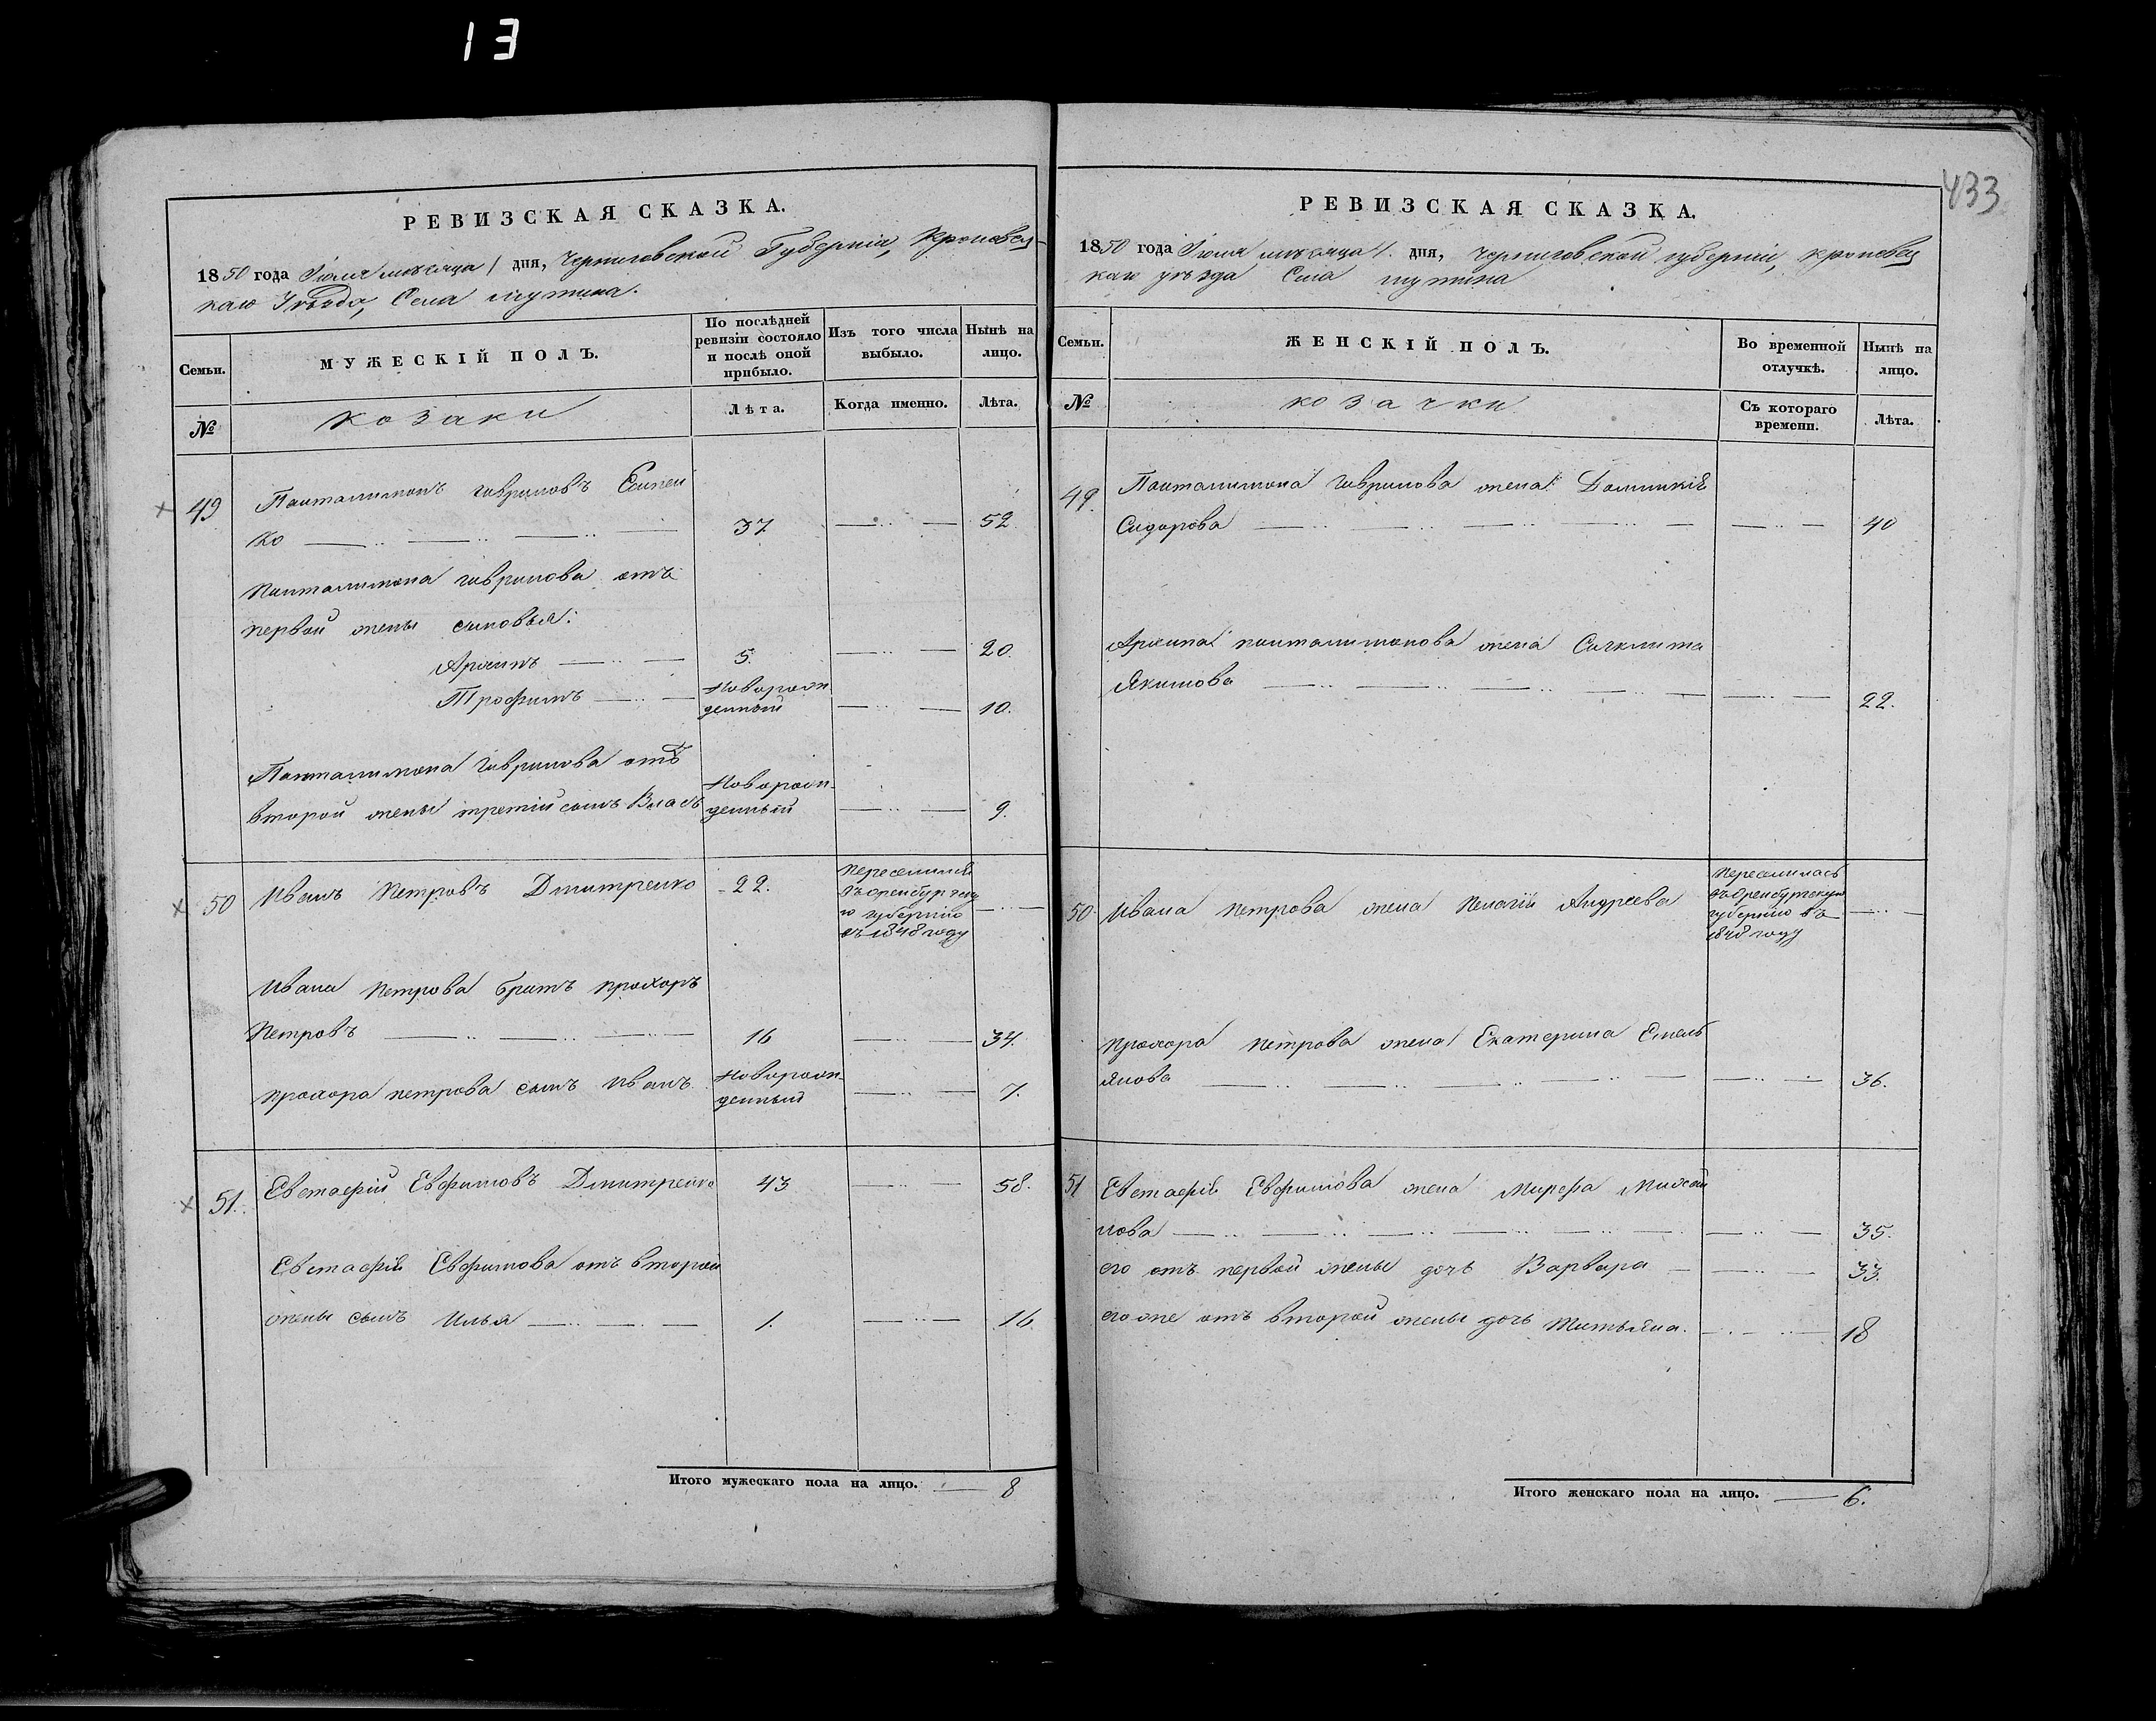 13
433
РЕВИЗСКАЯ СКАЗКА.
1850 года Іюля мѣсяца 1 дня, Черниговской Губерніи, Кролевец-
каго Уѣзда, Села Мутина.
Семьи.
МУЖЕСКІЙ ПОЛЪ.
По послѣдней ревизіи состояло и послѣ оной прибыло.
Изъ того числа выбыло.
Нынѣ на лицо.
№
Козаки
Лѣта.
Когда именно.
Лѣта.
49 Панталимонъ Гавриловъ
ко 37 52
Панталимона Гаврилова отъ
первой жены сыновья:
Архипъ 5. 20.
Трофимъ Новорожденный 10.
Панталимона Гаврилова отъ
второй жены третій сынъ Власъ Новорожденный 9.
50 Иванъ Петровъ Дмитренко 22. Переселился
въ Оренбургску
ю губернію
въ 1848 году
Ивана Петрова братъ Прохоръ
Петровъ 16 34.
Прохора Петрова сынъ Иванъ Новорожденный 7.
51. Евстафій Евфимовъ Дмитренко 43 58.
Евстафія Евфимова отъ второй
жены сынъ Илья 1. 16
Итого мужескаго пола на лицо. 8
РЕВИЗСКАЯ СКАЗКА.
1850 года Іюля мѣсяца 1. дня, Черниговской губерніи, Кролевец
каго уѣзда Села Мутина
Семьи.
ЖЕНСКІЙ ПОЛЪ.
Во временной отлучкѣ.
Нынѣ на лицо.
№
Козачки
Съ котораго времени.
Лѣта.
49. Панталимона Гаврилова жена Домникія
Сидорова 40
Архипа Панталимонова жена
Якимова 22.
50. Ивана Петрова жена Пелагія Андреева Переселилась
въ Оренбургскую
губернію въ
1848 году
Прохора Петрова жена Екатерина Емель
янова 36.
51 Евстафія Евфимова жена Марфа
лова 35.
его отъ первой жены дочь Варвара 33.
его же отъ второй жены дочь Татьяна. 18
Итого женскаго пола на лицо. 6.